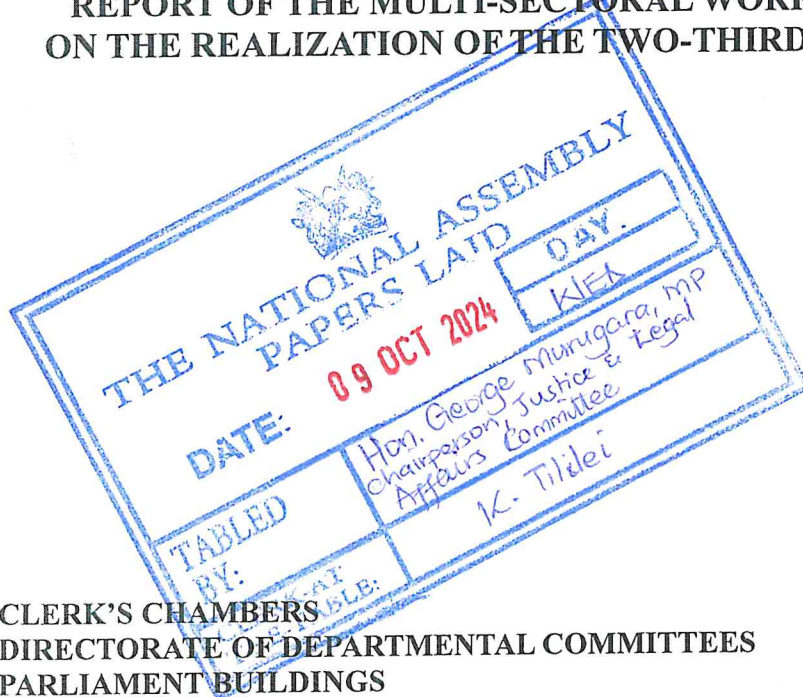 REPORT OF THE MULTI-SECTORAL WORK
ON THE REALIZATION OF THE TWO-THIRD
THE NATIONAL ASSEMBLY
PAPERS LAID
DATE: 09 OCT 2024
DAY.
WED
TABLED
BY:
Hon. George Murugara, MP
Chairperson, Justice & Legal
Affairs Committee
CLERK-AT
THE-TABLE:
K. Tililei
CLERK'S CHAMBERS
DIRECTORATE OF DEPARTMENTAL COMMITTEES
PARLIAMENT BUILDINGS